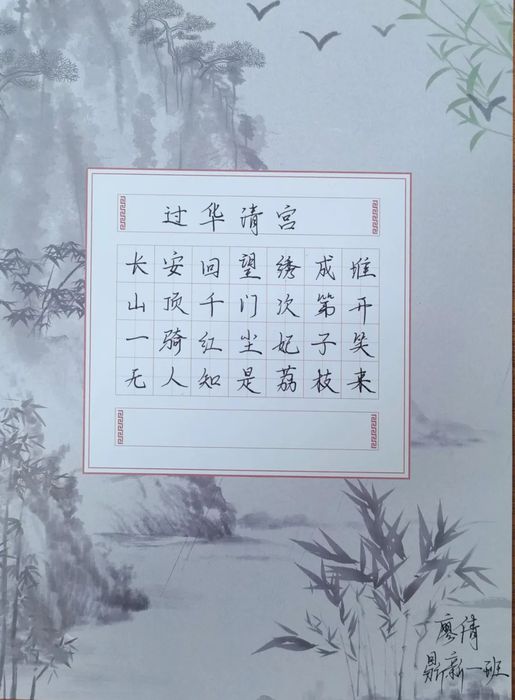 过华清宫
长安回望绣成堆
山顶千门次第开
一骑红尘妃子笑
无人知是荔枝来
廖倩
鼎新一班